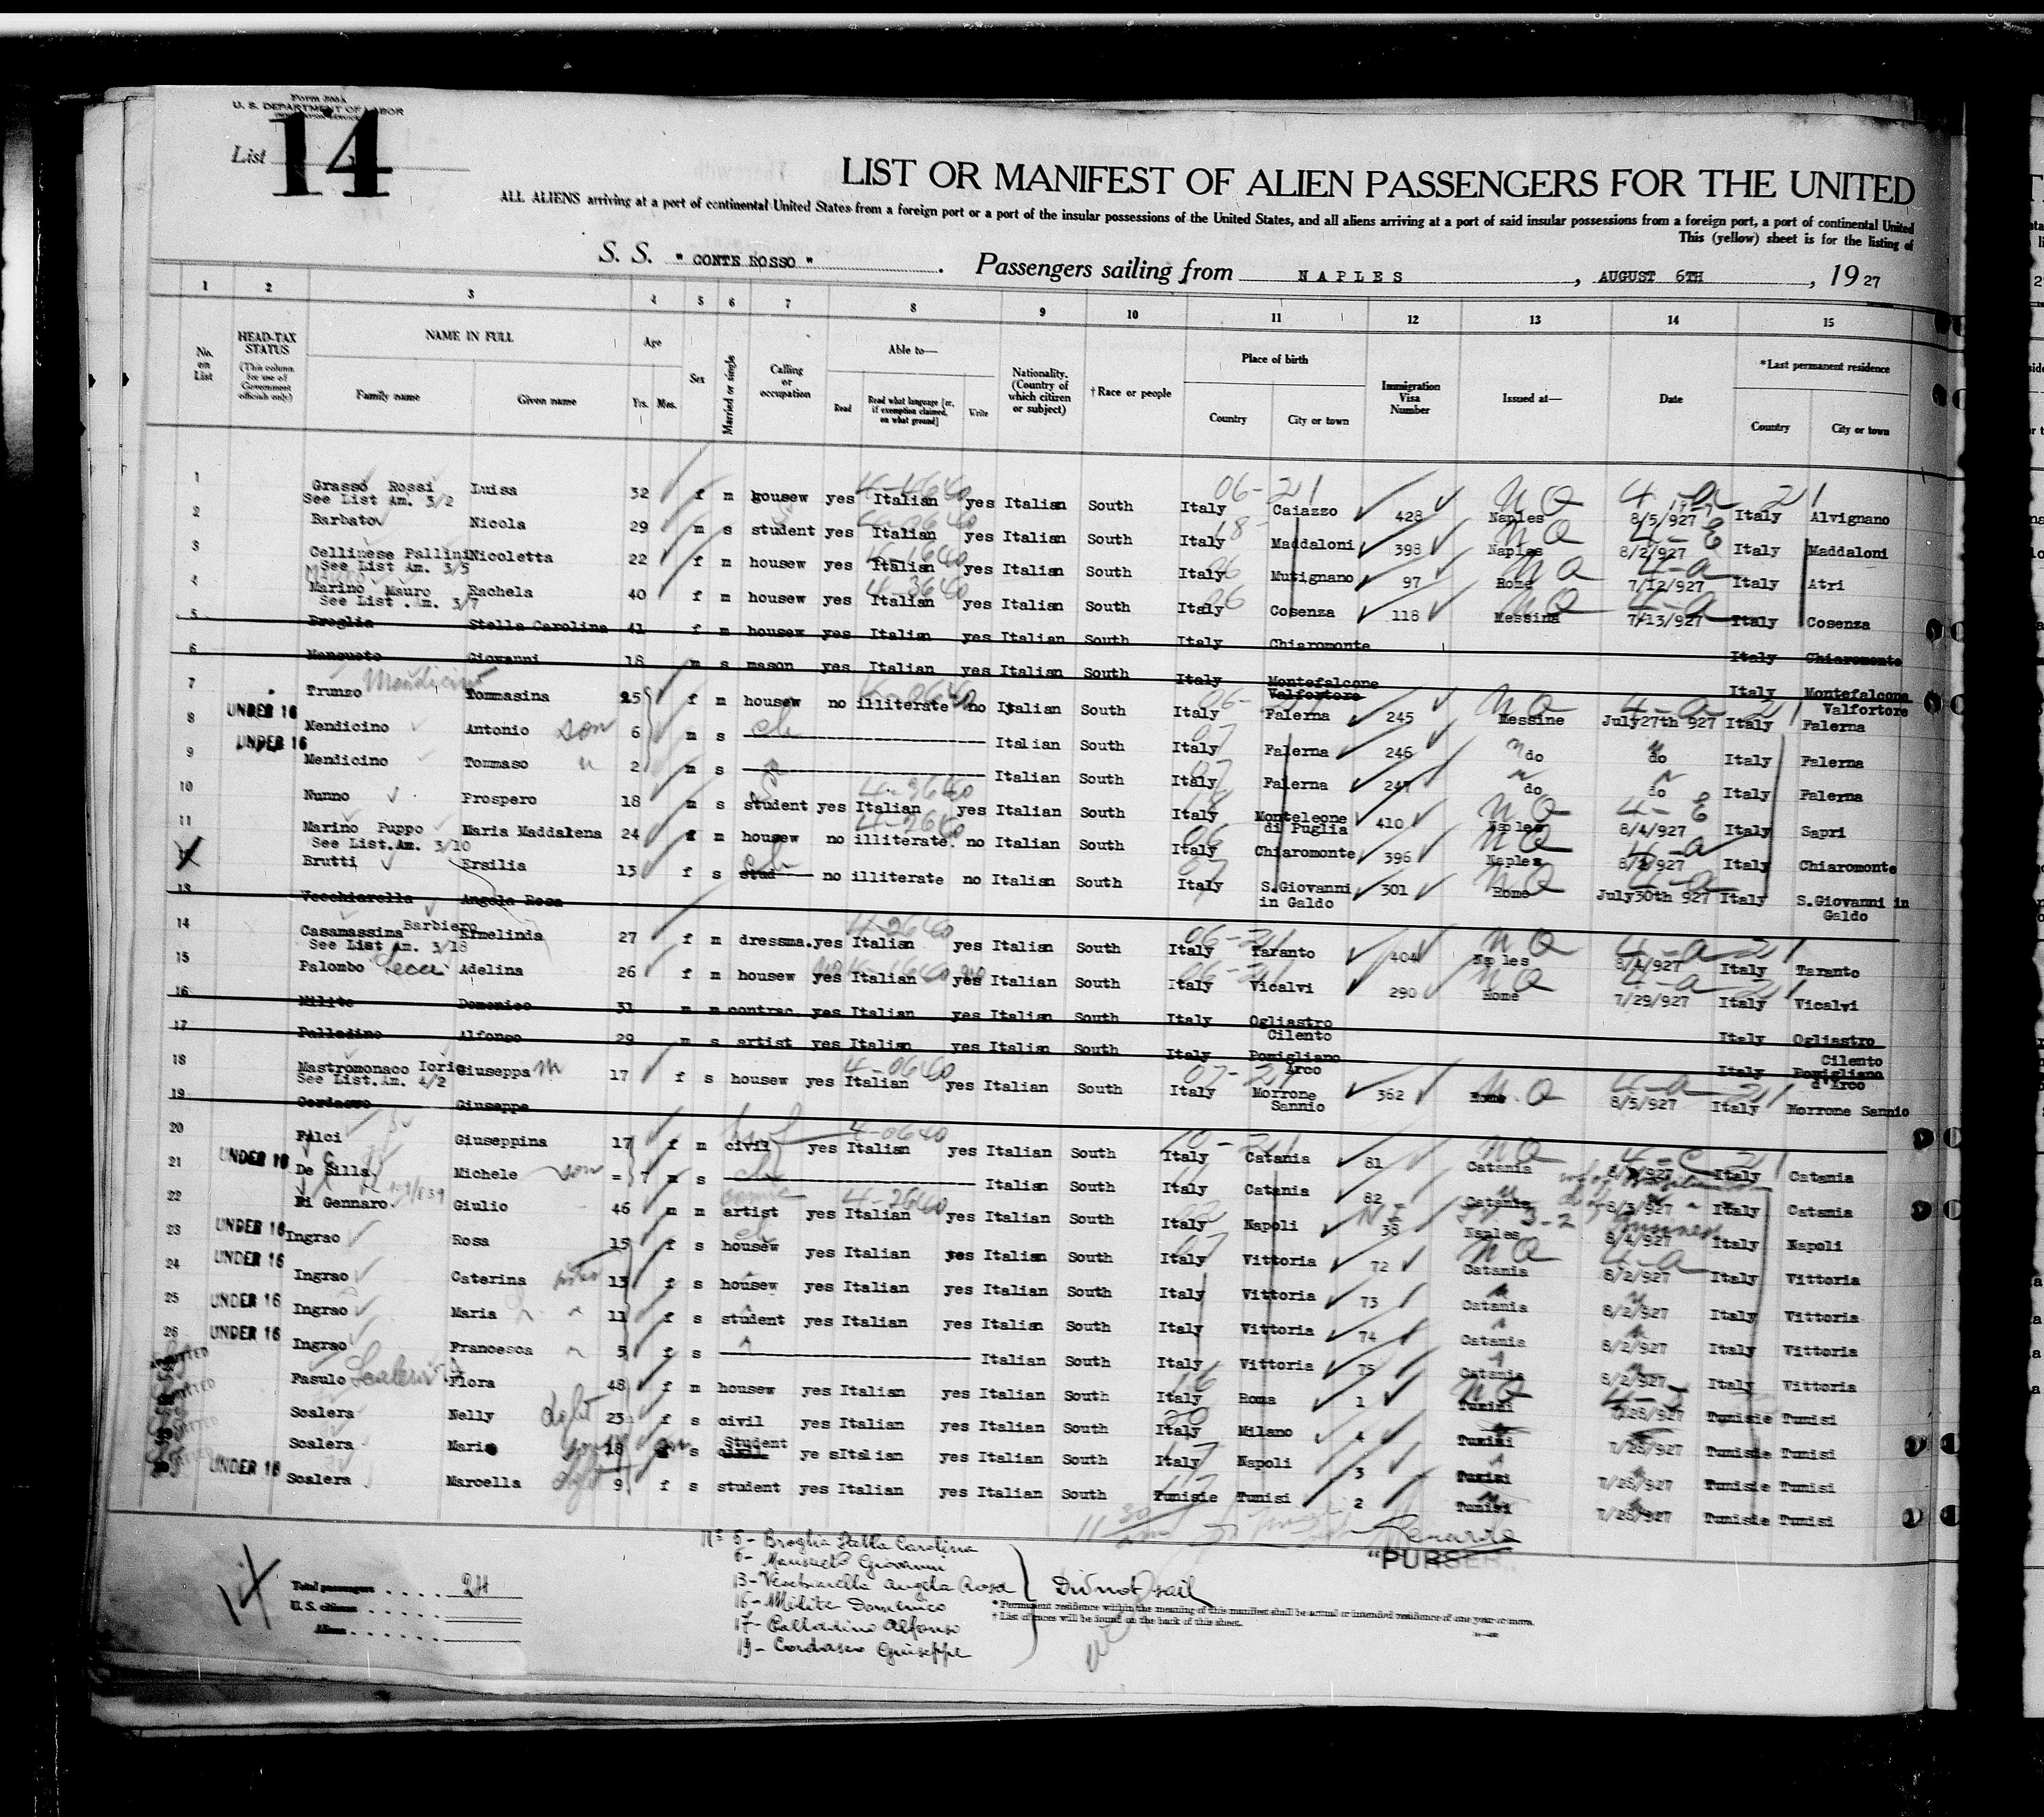 Form 500 A
U. S. DEPARTMENT OF LABOR
IMMIGRATION SERVICE
List 14
LIST OR MANIFEST OF ALIEN PASSENGERS FOR THE UNITED
ALL ALIENS arriving at a port of continental United States from a foreign port or a port of the insular possessions of the United States, and all aliens arriving at a port of said insular possessions from a foreign port, a port of continental United
This (yellow) sheet is for the listing of
S. S. " CONTE ROSSO " . Passengers sailing from NAPLES , AUGUST 6TH , 19 27
1 2 3 4 5 6 7 8 9 10 11 12 13 14 15
No. on List
HEAD-TAX STATUS
(This column for use of Government officials only)
NAME IN FULL
Family name Given name
Age
Yrs. Mos.
Sex
Married or single
Calling or occupation
Able to—
Read
Read what language [or, if exemption claimed, on what ground]
Write
Nationality. (Country of which citizen or subject)
† Race or people
Place of birth
Country City or town
Immigration Visa Number
Issued at—
Date
*Last permanent residence
Country City or town
1 Grasso Rossi Luisa 32 f m housew yes Italian yes Italian South Italy Caiazzo 428 Naples 8/5/927 Italy Alvignano
See List Am. 3/2
2 Barbato Nicola 29 m s student yes Italian yes Italian South Italy Maddaloni 398 Naples 8/2/927 Italy Maddaloni
3 Cellinese Pallini Nicoletta 22 f m housew yes Italian yes Italian South Italy Mutignano 97 Rome 7/12/927 Italy Atri
See List Am. 3/5
4 Marino Mauro Rachela 40 f m housew yes Italian yes Italian South Italy Cosenza 118 Messina 7/13/927 Italy Cosenza
See List .Am. 3/7
5 Broglia Stella Carolina 41 f m housew yes Italian yes Italian South Italy Chiaromonte Italy Chiaromonte
6 Mansueto Giovanni 18 m s mason yes Italian yes Italian South Italy Montefalcone Valfortore Italy Montefalcone Valfortore
7 Trunzo Mendicino Tommasina 25 f m housew no illiterate no Italian South Italy Falerna 245 Messine July27th 927 Italy Falerna
8 UNDER 16 Mendicino Antonio son 6 m s ch Italian South Italy Falerna 246 do do Italy Falerna
9 UNDER 16 Mendicino Tommaso " 2 m s Italian South Italy Falerna 247 do do Italy Falerna
10 Nunno Prospero 18 m s student yes Italian yes Italian South Italy Monteleone di Puglia 410 Naples 8/4/927 Italy Sapri
11 Marino Puppo Maria Maddalena 24 f m housew no illiterate. no Italian South Italy Chiaromonte 396 Naples 8/2/927 Italy Chiaromonte
See List.Am. 3/10
12 Brutti Ersilia 13 f s stud no illiterate no Italian South Italy S.Giovanni in Galdo 301 Rome July30th 927 Italy S.Giovanni in Galdo
13 Vecchiarella Angela Rosa
14 Casamassima Barbiero Ermelinda 27 f m dressma. yes Italian yes Italian South Italy Taranto 404 Naples 8/4/927 Italy Taranto
See List Am. 3/18
15 Palombo Adelina 26 f m housew yes Italian yes Italian South Italy Vicalvi 290 Rome 7/29/927 Italy Vicalvi
16 Milite Domenico 31 m m contrac. yes Italian yes Italian South Italy Ogliastro Cilento Italy Ogliastro Cilento
17 Palladino Alfonso 29 m s artist yes Italian yes Italian South Italy Pomigliano Arco Italy Pomigliano d'Arco
18 Mastromonaco Iorio Giuseppa m 17 f s housew yes Italian yes Italian South Italy Morrone Sannio 362 Rome 8/5/927 Italy Morrone Sannio
See List.Am. 4/2
19 Cordasco Giuseppe
20 Falci Giuseppina 17 f m civil yes Italian yes Italian South Italy Catania 81 Catania 8/3/927 Italy Catania
21 UNDER 16 De Silla Michele son = 7 m s Italian South Italy Catania 82 Catania 8/3/927 Italy Catania
22 Di Gennaro Giulio 46 m m artist yes Italian yes Italian South Italy Napoli 38 Naples 8/4/927 Italy Napoli
23 UNDER 16 Ingrao Rosa 15 f s housew yes Italian yes Italian South Italy Vittoria 72 Catania 8/2/927 Italy Vittoria
24 UNDER 16 Ingrao Caterina 13 f s housew yes Italian yes Italian South Italy Vittoria 73 Catania 8/2/927 Italy Vittoria
25 UNDER 16 Ingrao Maria 11 f s student yes Italian yes Italian South Italy Vittoria 74 Catania 8/2/927 Italy Vittoria
26 UNDER 16 Ingrao Francesca 5 f s Italian South Italy Vittoria 75 Catania 8/2/927 Italy Vittoria
ADMITTED Fasulo Flora 48 f m housew yes Italian yes Italian South Italy Roma 1 Tunisi 7/25/927 Tunisie Tunisi
Scalera Nelly 23 f s civil yes Italian yes Italian South Italy Milano 4 Tunisi 7/25/927 Tunisie Tunisi
Scalera Mario 18 s Student yes Italian yes Italian South Italy Napoli 3 Tunisi 7/25/927 Tunisie Tunisi
UNDER 16 Scalera Marcella 9 f s student yes Italian yes Italian South Tunisie Tunisi 2 Tunisi 7/25/927 Tunisie Tunisi
"PURSER"
Total passengers . . . . 24
U. S. citizens . . . . .
Aliens . . . . . .
Nº 5 - Broglia Stella Carolina
6 - Mansueto Giovanni
13 - Vecchiarella Angela Rosa
16 - Milite Domenico
17 - Palladino Alfonso
19 - Cordasco Giuseppe
Did not sail
* Permanent residence within the meaning of this manifest shall be actual or intended residence of one year or more.
† List of races will be found on the back of this sheet.